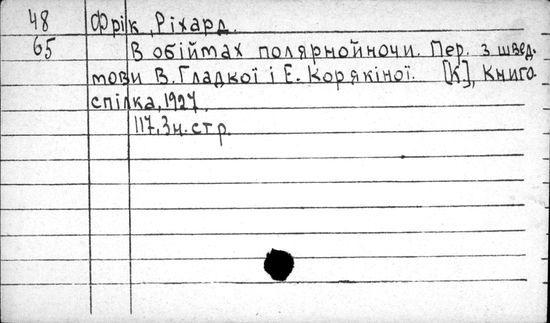 48 Фрік, Ріхард.
65 В обіймах полярнойночи. Пер. з швед-
мови В. Гладкої і Е. Корякіної. [К], Книго-
спілка, 1927.
117, 3н. стр.